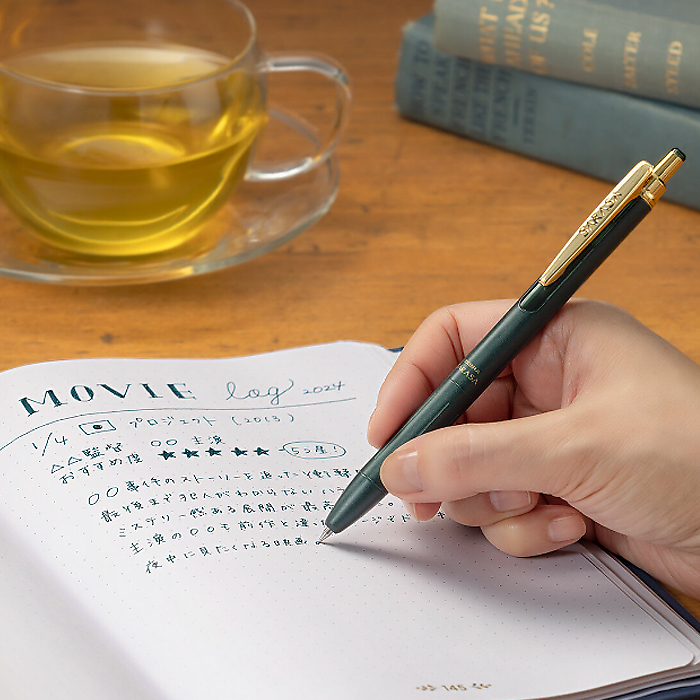 WHAT
AHEAD
OF US?
COLE
STEED
HOW TO
SPEAK
FRENCH
LIKE THE
FRENCH
SARASA
MOVIE log 2024
1/4 プロジェクト (2013)
△△監督 ○○ 主演
おすすめ度 ★★★★★ 5つ星!
○○事件のストーリーを追った
最後まで犯人がわからない
ミステリー感ある展開が最高
主演の○○も前作と違
夜中に見たくなる映画。
145